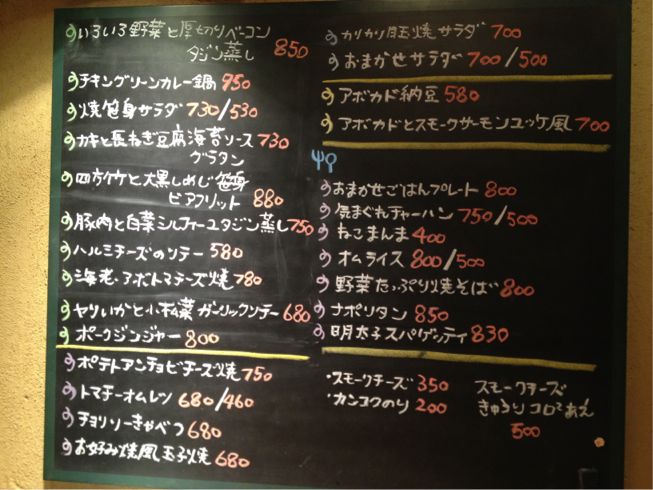 いろいろ野菜と厚切りベーコン
タジン蒸し 850
チキングリーンカレー鍋 950
焼笹身サラダ 730/530
カキと長ねぎ豆腐海苔ソース
グラタン 730
四方竹と大黒しめじ笹身
ビアフリット 880
豚肉と白菜シルフィーユタジン蒸し 750
ハルミチーズのソテー 580
海老・アボトマチーズ焼 780
ヤリいかと小松菜ガーリックソテー 680
ポークジンジャー 800
ポテトアンチョビチーズ焼 750
トマチーオムレツ 680/460
チョリソーきゃべつ 680
お好み焼風玉子焼 680
カリカリ目玉焼サラダ 700
おまかせサラダ 700/500
アボカド納豆 580
アボカドとスモークサーモンユッケ風 700
おまかせごはんプレート 800
気まぐれチャーハン 750/500
ねこまんま 400
オムライス 800/500
野菜たっぷり焼そば 800
ナポリタン 850
明太子スパゲッティ 830
・スモークチーズ 350
・カンコクのり 200
スモークチーズ
きゅうりコロコロあえ
500